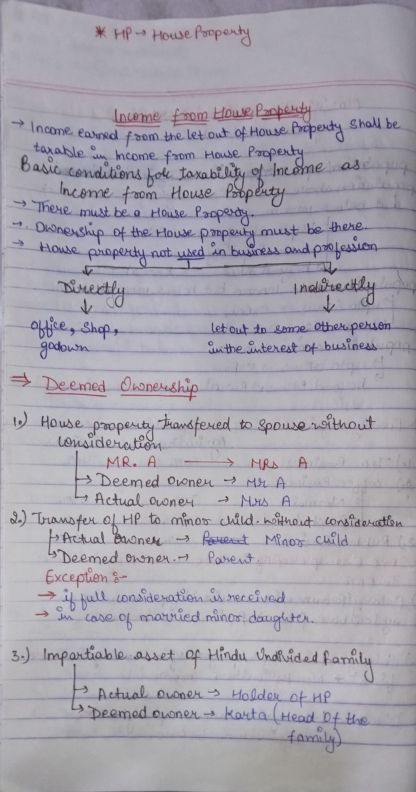 * HP → House Property
Income from House Property
→ Income earned from the let out of House Property shall be
taxable in Income from House Property
Basic conditions for taxability of Income as
Income from House Property
→ There must be a House Property.
→ Ownership of the House property must be there.
→ House property not used in business and profession
Directly Indirectly
office, Shop, let out to some other person
godown in the interest of business
⇒ Deemed Ownership
1.) House property transfered to Spouse without
consideration
MR. A → MRS A
→ Deemed owner → Mr A
→ Actual owner → Mrs A
2.) Transfer of HP to minor child without consideration
→ Actual owner → Parent Minor Child
→ Deemed owner → Parent
Exception :-
→ if full consideration is received
→ in case of married minor daughter.
3.) Impartiable asset of Hindu Undivided Family
→ Actual owner → Holder of HP
→ Deemed owner → Karta (Head Of the
family)